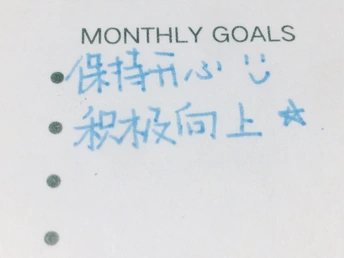 MONTHLY GOALS
保持开心
积极向上